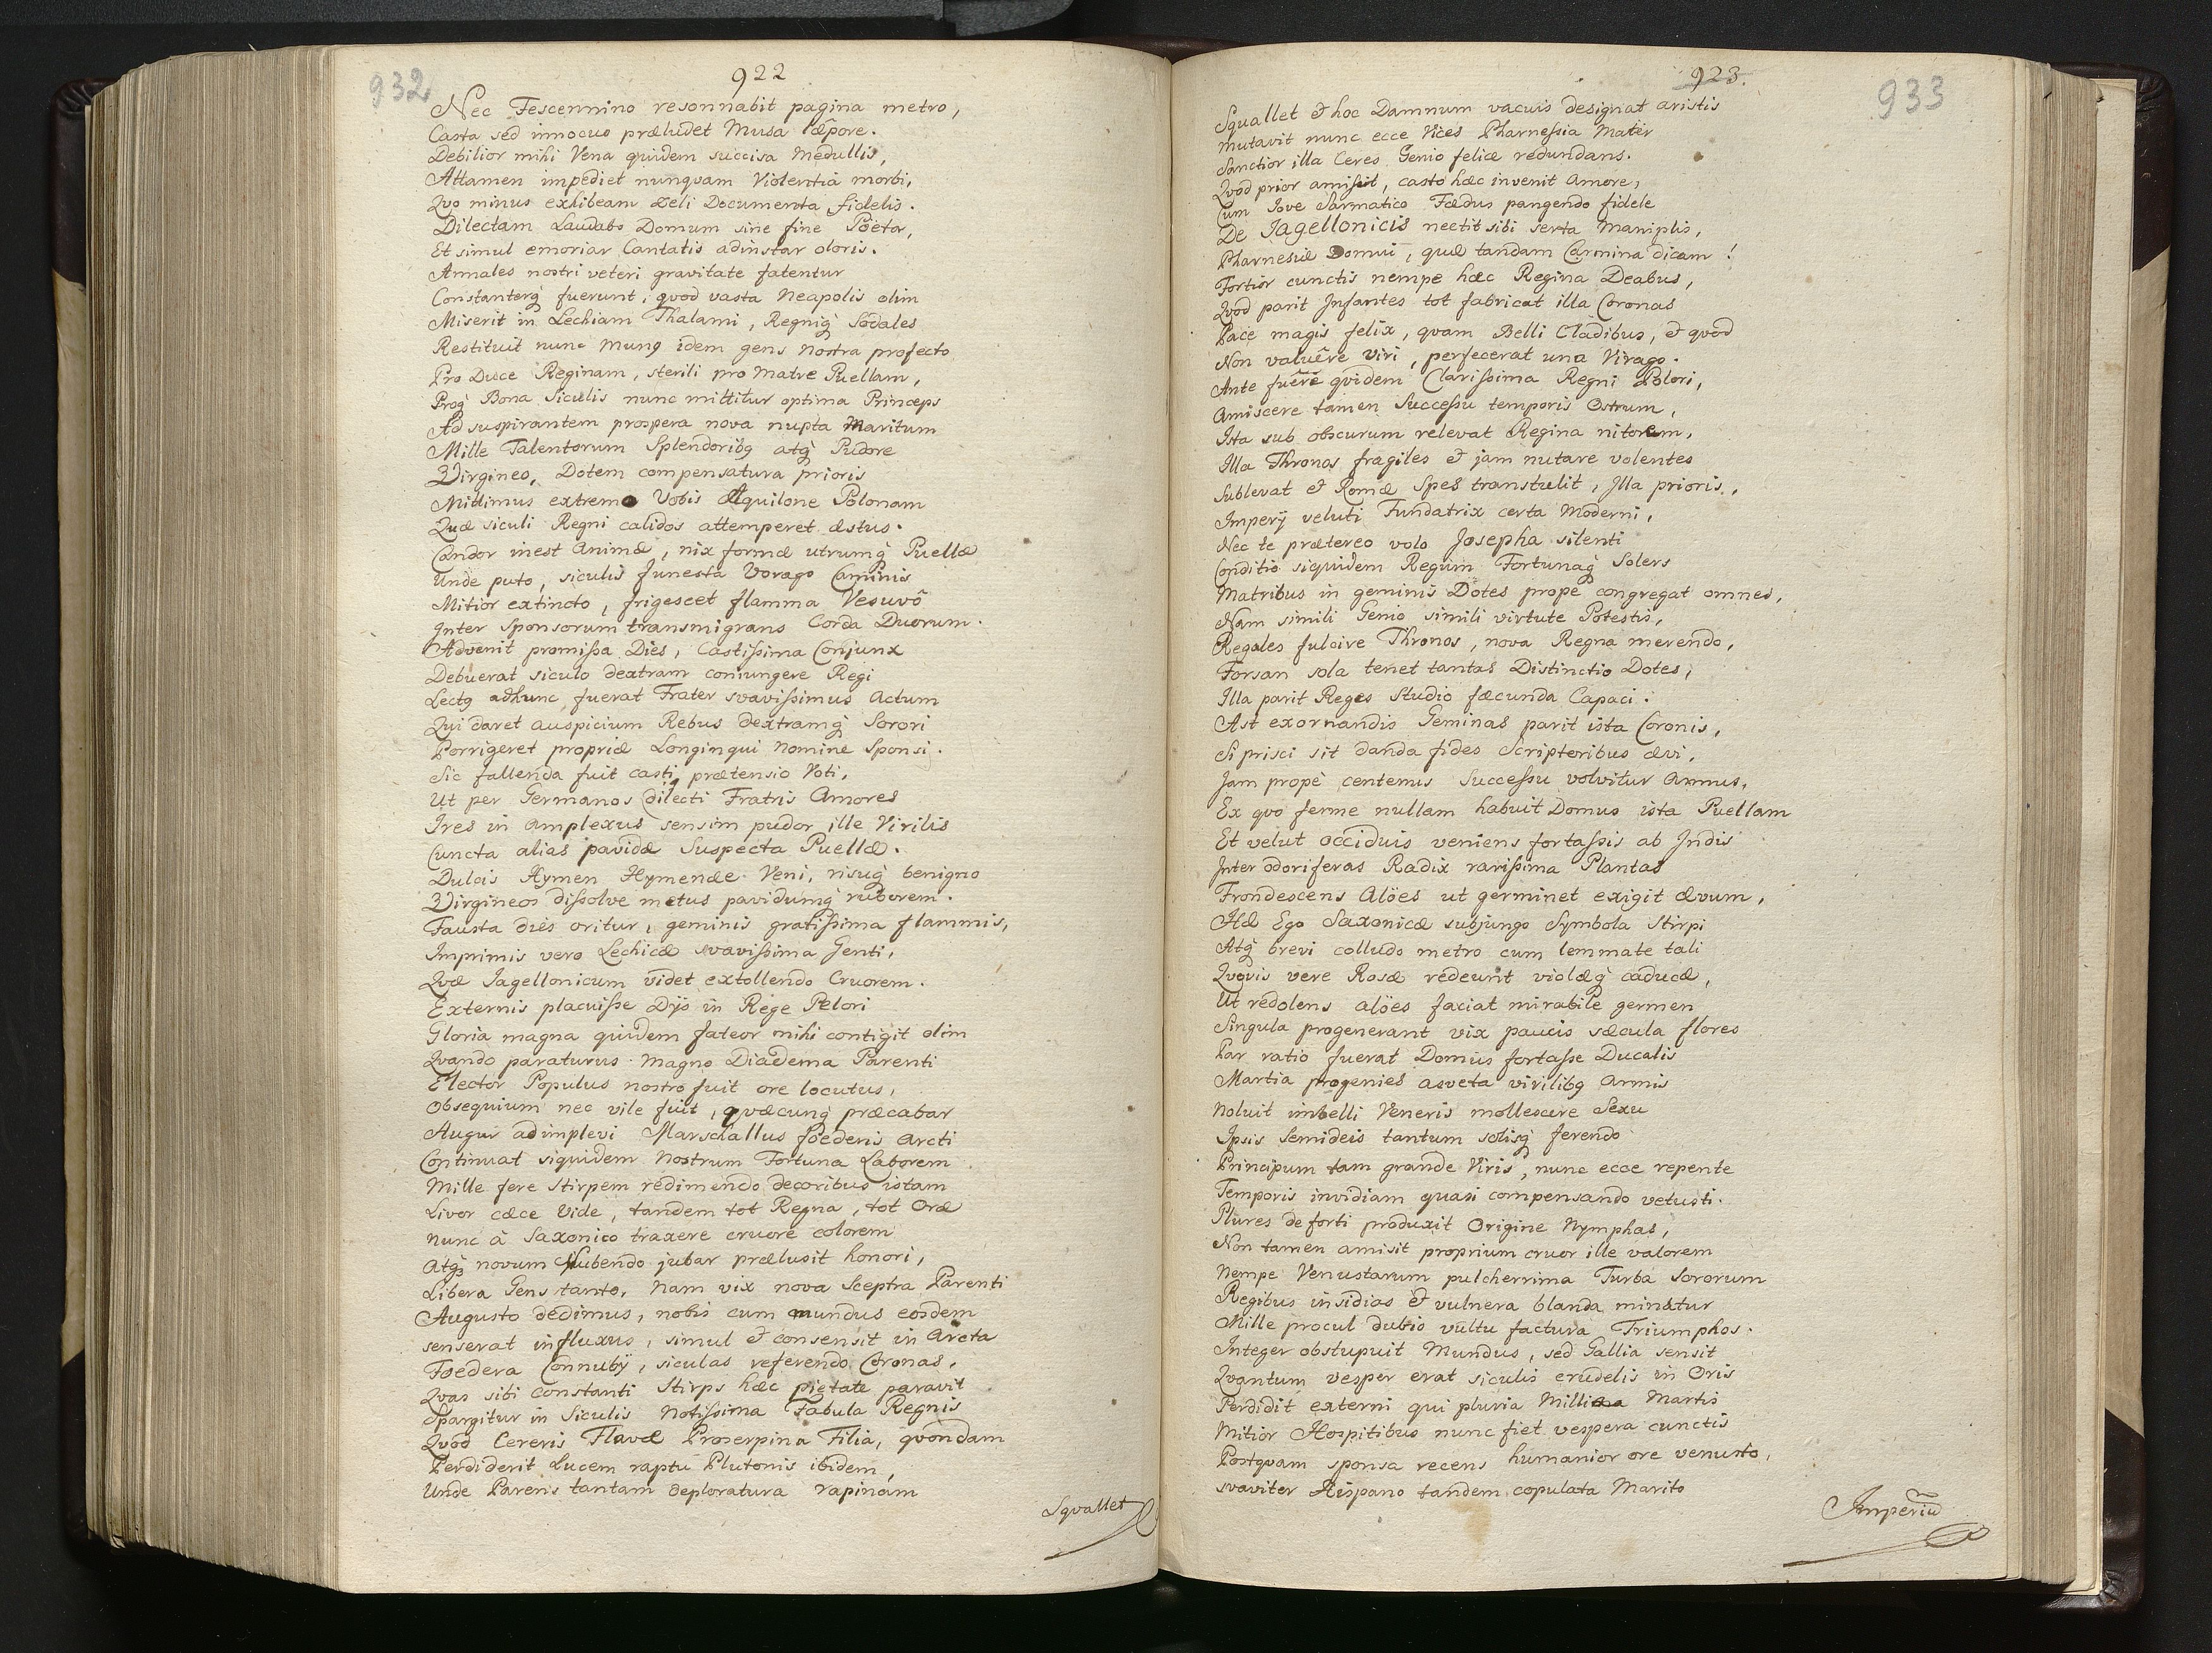 932
922
Nec Fescennino resonnabit pagina metro,
Casta sed innocuo præludet Musa lêpore.
Debilior mihi Vena quidem succisa Medullis,
Attamen impediet nunquam Violentia morbi,
Quo minus exhibeam Zeli Documenta fidelis.
Dilectam Laudabo Domum sine fine Poëta,
Et simul emoriar Cantatis adinstar oloris.
Annales nostri veteri gravitate fatentur
Constanterq fuerunt, quod vasta Neapolis olim
Miserit in Lechiam Thalami, Regniq Sodales
Restituit nunc Mung idem gens nostra profecto
Pro Duce Reginam, sterili pro Matre Puellam,
Proq Bona Siculis nunc mittitur optima Princeps
Ad suspirantem prospera nova nupta Maritum
Mille Talentorum Splendoribg atq Pudore
Virgineo, Dotem compensatura prioris
Mittimus extremo Vobis Aquilone Polonam
Quæ siculi Regni calidos attemperet æstus.
Candor inest Animæ, nix formæ utrumq Puellæ
Unde puto, siculis funesta Vorago Caminis
Mitior extincto, frigescet flamma Vesuvô
Inter Sponsorum transmigrans Corda Duorum.
Advenit promissa Dies, Castissima Conjunx
Debuerat siculo dextram coniungere Regi
Lectg adhunc, fuerat Frater svavissimus Actum
Qui daret auspicium Rebus dextramq Sorori
Porrigeret propriæ Longinqui Nomine Sponsi.
Sic fallenda fuit casti prætensio Voti,
Ut per Germanos dilecti Fratris Amores
Ires in amplexus sensim pudor ille Virilis
Cuncta alias pavidæ Suspecta Puellæ.
Dulcis Hymen Hymenæe Veni, risuq benigno
Virgineos dissolve metus pavidumq ruborem.
Fausta dies oritur, geminis gratissima flammis,
Imprimis vero Lechicæ svavissima Genti,
Quæ Jagellonicum videt extollendo Cruorem.
Externis placuisse Dijs in Rege Pelori
Gloria magna quidem fateor mihi contigit olim
Quando paraturus Magno Diadema Parenti
Elector Populus nostro fuit ore locutus,
Obsequium nec vile fuit, quæcunq præcabar
Augur adimplevi Marschallus foederis arcti
Continuat siquidem Nostrum Fortuna Laborem
Mille fere Stirpem redimendo decoribus istam
Livor cæce Vide, tandem tot Regna, tot Oræ
Nunc à Saxonico traxere cruore colorem
Atq novum Nubendo jubar prælusit honori,
Libera Gens tanto, Nam vix nova Sceptra Parenti
Augusto dedimus, nobis cum mundus eosdem
senserat influxus, simul & consensit in Arcta
Foedera Connubij, siculas referendo Coronas,
Quas sibi constanti Stirps hæc pietate paravit
Spargitur in Siculis Notissima Fabula Regnis
Quod Cereris Flavæ Proserpina Filia, quondam
Perdiderit Lucem raptu Plutonis ibidem,
Unde Parens tantam deploratura rapinam
Squallet
933
923.
Squallet & hoc Damnum vacuis designat aristis
Mutavit nunc ecce Vices Pharnessia Mater
Sanctior illa Ceres Genio felice redundans.
Quod prior amisit, casto hæc invenit Amore,
Cum Jove Sarmatico Fædus pangendo fidele
De Jagellonicis nectit sibi serta Maniplis,
Pharnesiæ Domui, quæ tandam Carmina dicam!
Fortior cunctis nempe hæc Regina Deabus,
Quod parit Infantes tot fabricat illa Coronas
Pace magis felix, quam Belli Cladibus, & quod
Non valuêre viri, perfecerat una Virago.
Ante fuêre quidem Clarissima Regni Polori,
Amiscere tamen Successu temporis Ostrum,
Ista sub obscurum relevat Regina nitorem,
Illa Thronos fragiles & jam nutare volentes
Sublevat & Romæ Spes transtulit, Illa prioris,
Imperij veluti Fundatrix certa Moderni,
Nec te prætereo volo Josepha silenti
Conditio siquidem Regum Fortunaq Solers
Matribus in geminis Dotes prope congregat omnes,
Nam simili Genio simili virtute Potestis,
Regales fulcire Thronos, nova Regna merendo,
Forsan sola tenet tantas Distinctio Dotes,
Illa parit Reges Studio fæcunda Capaci.
Ast exornandis Geminas parit ista Coronis,
Si prisci sit danda fides Scriptoribus ævi,
Jam propè centenus Successu volvitur Annus,
Ex quo ferme nullam habuit Domus ista Puellam
Et velut occiduis veniens fortassis ab Indis
Inter odoriferas Radix rarissima Plantas
Frondescens Alöes ut germinet exigit ævum,
Hæ Ego Saxonicæ subjungo Symbola Stirpi
Atq brevi colludo metro cum lemmate tali
Quovis vere Rosæ redeunt violæq caducæ,
Ut redolens alöes faciat mirabile germen
Singula progenerant vix paucis sæcula flores
Par ratio fuerat Domus fortasse Ducalis
Martia progenies asveta virilibg Armis
Noluit imbelli Veneris mollescere Sexu
Ipsis Semideis tantum solisq ferendo
Principum tam grande Viris, nunc ecce repente
Temporis invidiam quasi compensando vetusti.
Plures de forti produxit Origine Nymphas,
Non tamen amisit proprium cruor ille valorem
Nempe Venustarum pulcherrima Turba Sororum
Regibus insidias & vulnera blanda minatur
Mille procul dubio vultu factura Triumphos.
Integer obstupuit Mundus, sed Gallia sensit
Quantum vesper erat siculis crudelis in Oris
Perdidit externi qui pluria Millia Martis
Mitior Hospitibus nunc fiet vespera cunctis
Postquam sponsa recens humanior ore venusto,
svaviter Hispano tandem copulata Marito
Imperiũ